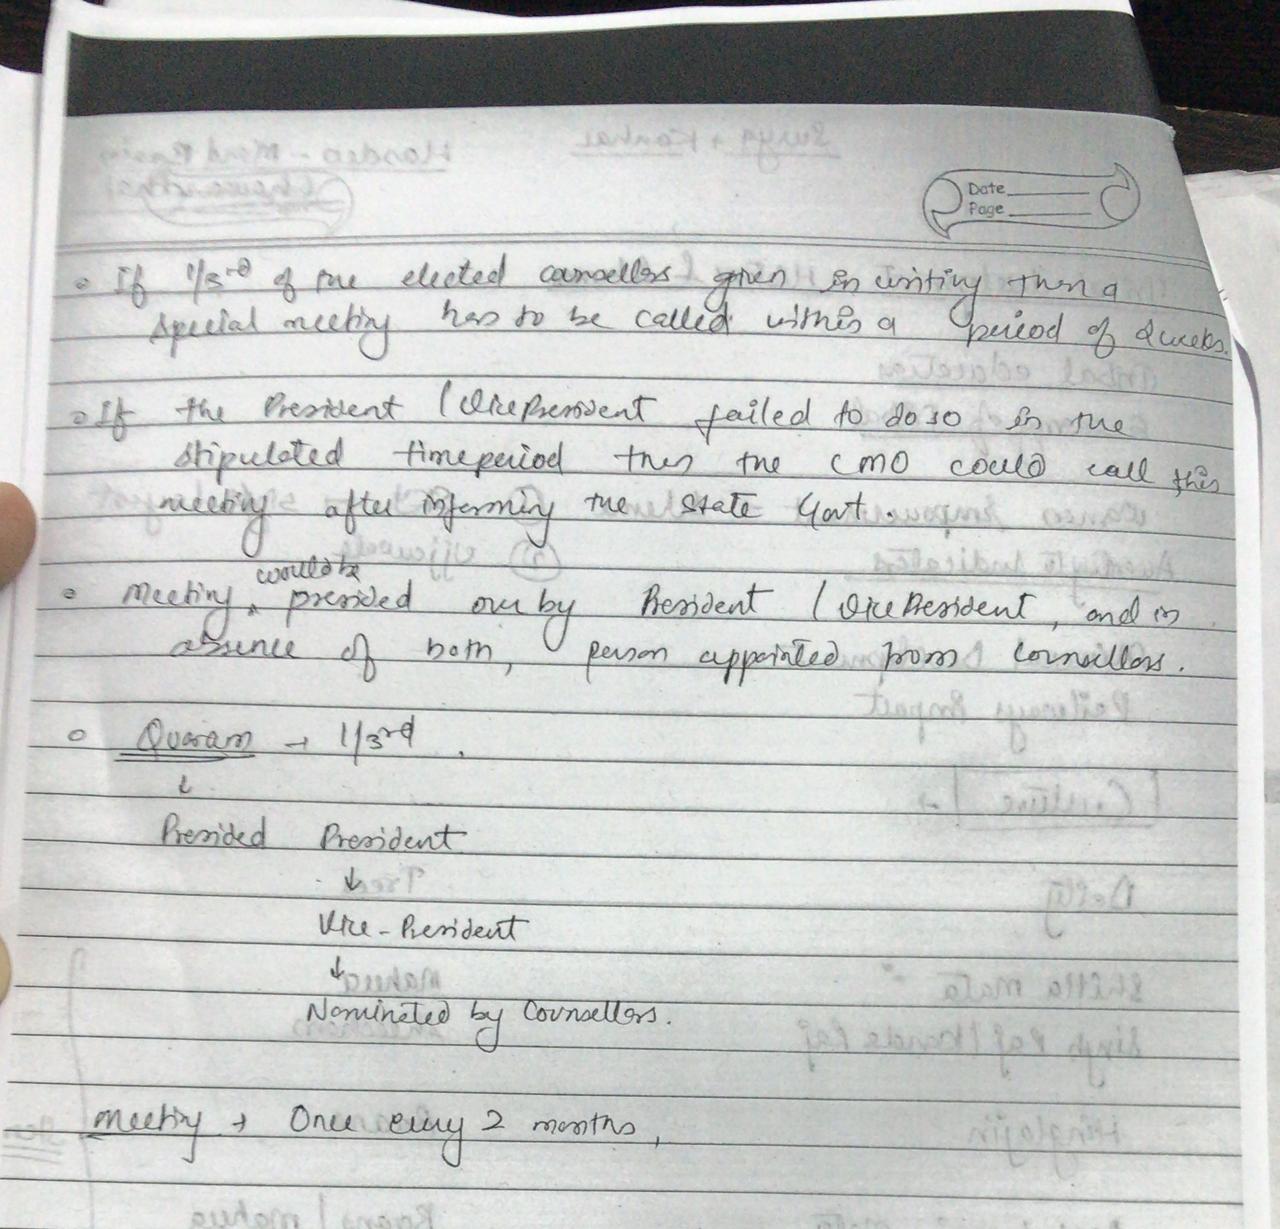 Date
Page
If 1/3rd of the elected counsellors given in writing then a
special meeting has to be called within a period of 2 weeks.
If the President / Vice President failed to do so in the
stipulated time period then the CMO could call this
meeting after informing the State Govt.
would be
Meeting presided over by President / Vice President, and in
absence of both, person appointed from Counsellors.
Quoram → 1/3rd.
↓
Presided President
↓
Vice-President
↓
Nominated by Counsellors.
Meeting → Once every 2 months,